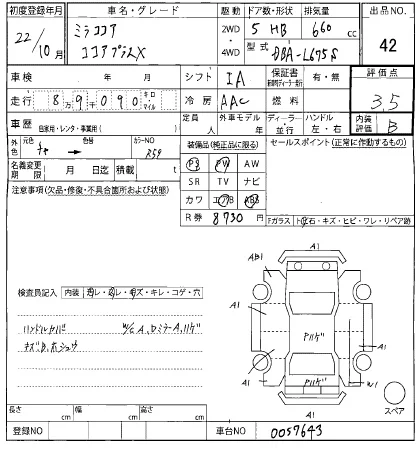 初度登録年月 車名・グレード 駆動 ドア数・形状 排気量 出品NO.
22/10月 ミラココア ココアプラスX 2WD 4WD 5 HB 660 cc 42
型式 DBA-L675S
車検 年 月 シフト IA 保証書 有・無 評価点
走行 8万9千090 キロ・マイル 冷房 AAC 燃料 3.5
車歴 自家用・レンタ・事業用( ) 定員 外車モデル 年 ディーラー・並行 ハンドル 左・右 内装評価 B
外色 元色 茶 → 色替 カラーNO R59 装備品(純正品に限る) セールスポイント(正常に作動するもの)
名義変更期限 月 日迄 積載 t PS PW AW
注意事項(欠品・修復・不具合箇所および状態) SR TV ナビ
カワ エアB ABS
R券 8730円 Fガラス ト・石・キズ・ヒビ・ワレ・リペア跡
A1
AB1
検査員記入 内装 ヨゴレ・スレ・キズ・キレ・コゲ・穴
A1 A1
W/C A、DミラーA、ハゲ
Pハゲ
A1 Pハゲ W1
A1 スペア
長さ cm 幅 cm 高さ cm
登録NO 車台NO 0057643